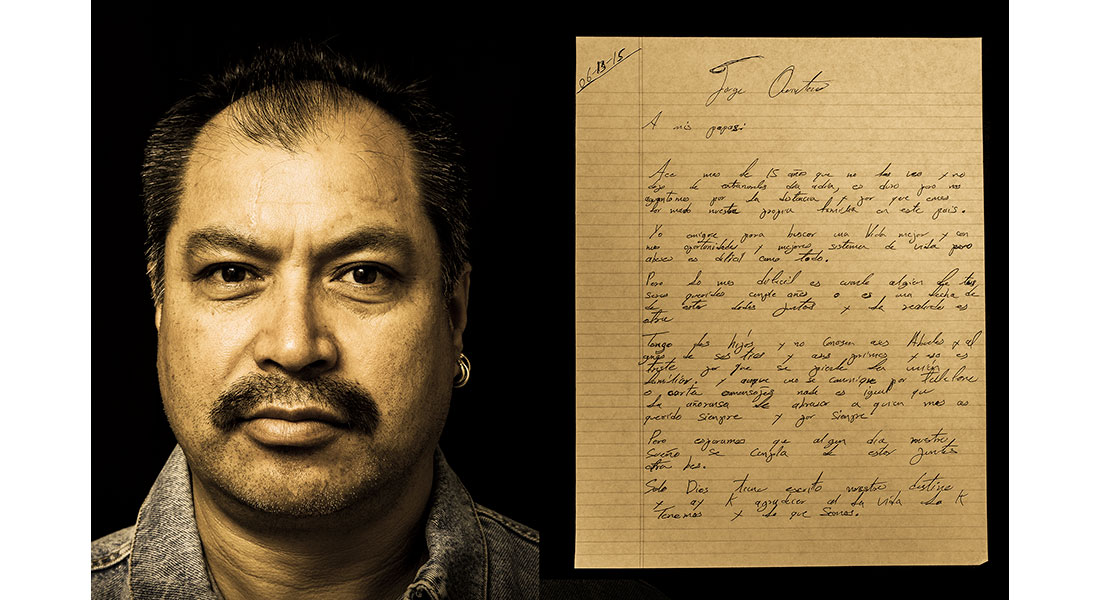 06-13-15
Jorge
A mis papas:
Ace mas de 15 años que no los veo y no
dejo de extrañarlos dia adia, es duro pero nos
aguantamos por la distancia y por que emos
formado nuestra propia familia en este pais.
Yo emigre para buscar una Vida mejor y con
mas oportunidades y mejores sistema de vida pero
abeses es dificil como todo.
Pero lo mas dificil es cuando algien de tus
seres queridos cumple años o es una fecha de
de estar todos juntos y la realidad es
otra
Tengo hijos y no conosen asus Abuelos y al
gunos de sus tios y asus primos y eso es
triste por que se pierde la unión
familiar. y aunque uno se comunique por telefono
o carta omensajes nada es igual que
la añoransa de abrasar a quien mas as
querido siempre y por siempre.
Pero esperamos que algun dia nuestro
Sueño se cumpla de estar juntos
otra bes.
Solo Dios tiene escrito nuestro destino
y ay K agradecer al la Vida lo K
Tenemos y lo que Somos.